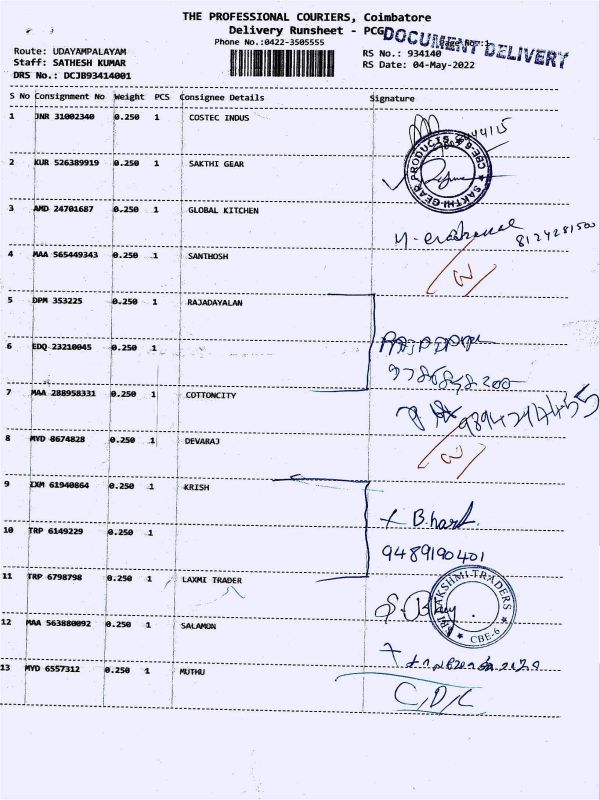 THE PROFESSIONAL COURIERS, Coimbatore
Delivery Runsheet - PCG
DOCUMENT DELIVERY
Phone No.:0422-3505555
Route: UDAYAMPALAYAM
RS No.: 934140
Staff: SATHESH KUMAR
RS Date: 04-May-2022
DRS No.: DCJB93414001
S No Consignment No Weight PCS Consignee Details Signature
1 JNR 31002340 0.250 1 COSTEC INDUS
2 KUR 526389919 0.250 1 SAKTHI GEAR
SAKTHI-GEAR PRODUCTS CBE-6
3 AMD 24701687 0.250 1 GLOBAL KITCHEN
8124281500
4 MAA 565449343 0.250 1 SANTHOSH
5 DPM 353225 0.250 1 RAJADAYALAN
6 EDQ 23210045 0.250 1
7 MAA 288958331 0.250 1 COTTONCITY
8 MYD 8674828 0.250 1 DEVARAJ
9 IXM 61940864 0.250 1 KRISH
10 TRP 6149229 0.250 1
9489190401
11 TRP 6798798 0.250 1 LAXMI TRADER
SRI LAKSHMI-TRADERS CBE-6
12 MAA 563880092 0.250 1 SALAMON
13 MYD 6557312 0.250 1 MUTHU
C/D/L